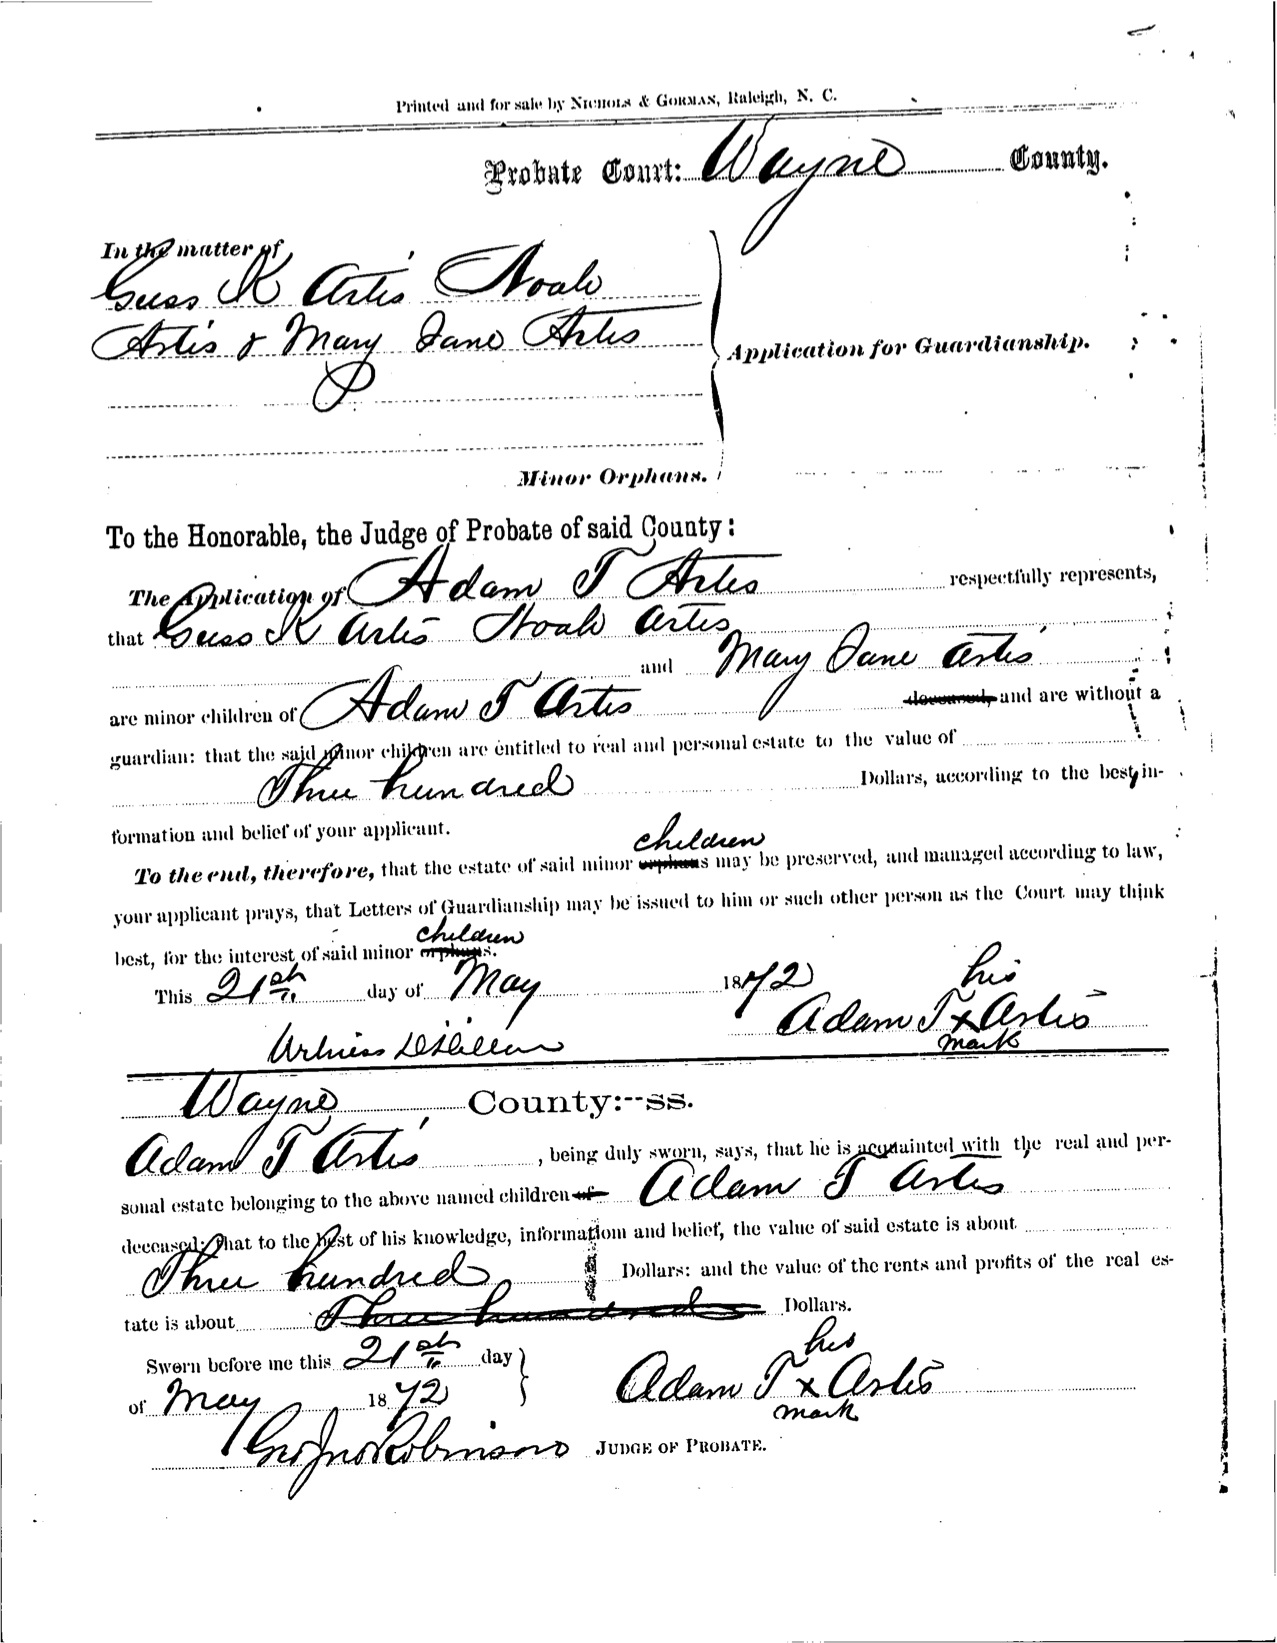 Printed and for sale by NICHOLS & GORMAN, Raleigh, N. C.
Probate Court: Wayne County.
In the matter of
Guss K Artis Noah
Artis & Mary Jane Artis
Application for Guardianship.
Minor Orphans.
To the Honorable, the Judge of Probate of said County:
The Application of Adam T Artis respectfully represents,
that Guss K Artis Noah Artis
and Mary Jane Artis
are minor children of Adam T Artis deceased, and are without a
guardian: that the said minor children are entitled to real and personal estate to the value of
Three hundred Dollars, according to the best in-
formation and belief of your applicant.
children
To the end, therefore, that the estate of said minor orphans may be preserved, and managed according to law,
your applicant prays, that Letters of Guardianship may be issued to him or such other person as the Court may think
children
best, for the interest of said minor orphans.
This 21st day of May 1872
his
Adam T x Artis
mark
Witness
Wayne County:--ss.
Adam T Artis, being duly sworn, says, that he is acquainted with the real and per-
sonal estate belonging to the above named children of Adam T Artis
deceased; that to the best of his knowledge, information and belief, the value of said estate is about
Three hundred Dollars: and the value of the rents and profits of the real es-
tate is about Three hundred Dollars.
Sworn before me this 21st day
of May 1872
his
Adam T x Artis
mark
Robinson JUDGE OF PROBATE.